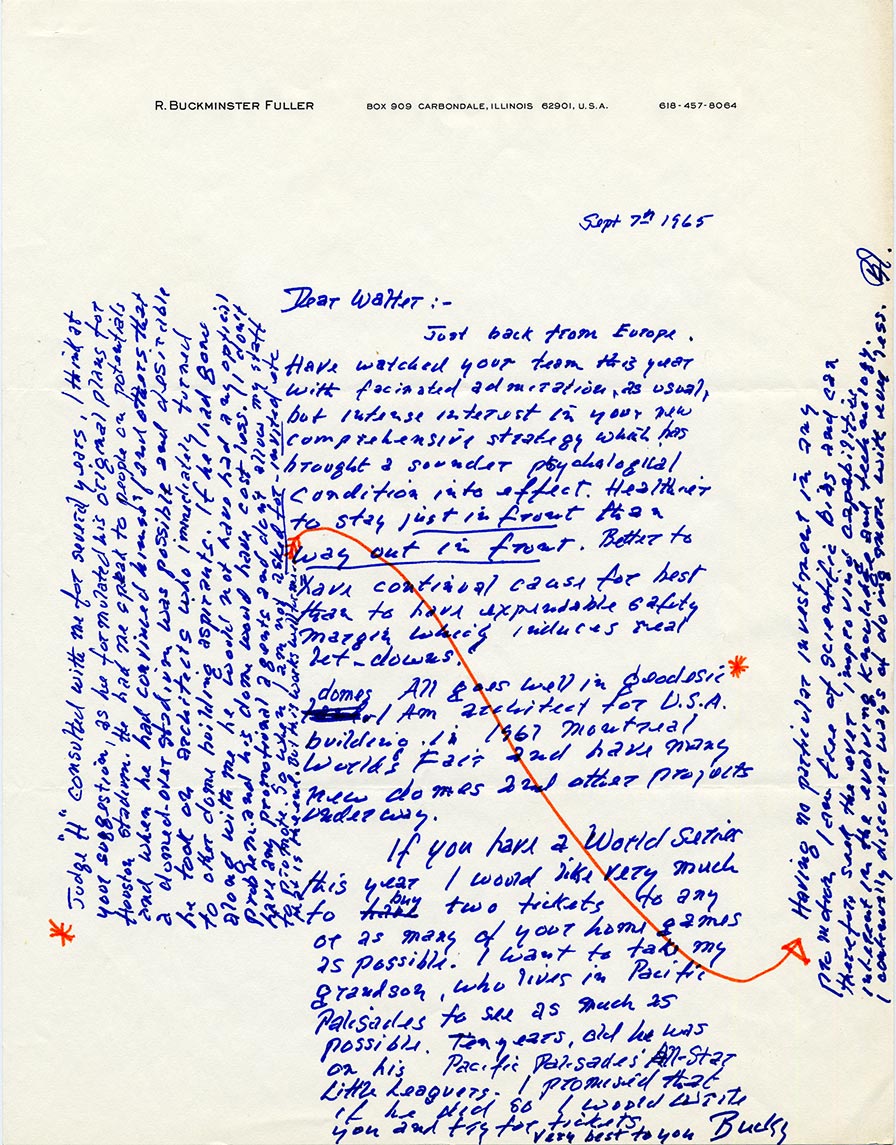 R. BUCKMINSTER FULLER BOX 909 CARBONDALE, ILLINOIS 62901, U.S.A. 618-457-8064
Sept 7th 1965
Dear Walter :-
Just back from Europe.
Have watched your team this year
with facinated admiration, as usual,
but intense interest in your new
comprehensive strategy which has
brought a sounder psychological
condition into effect. Healthier
to stay just in front than
way out in front. Better to
have continual cause for best
than to have expendable safety
margin which induces real
let-downs.
domes All goes well in Geodesic *
I Am architect for U.S.A.
building in 1967 Montreal
Worlds Fair and have many
new domes and other projects
underway.
If you have a World Series
this year I would like very much
to buy two tickets to any
or as many of your home games
as possible. I want to take my
grandson, who lives in Pacific
Palisades to see as much as
possible. Ten years old he was
on his Pacific Palisades' All-Star
Little Leaguers. I promised that
if he did so I would write
you and try for tickets.
Very best to you Bucky
* Judge "H" consulted with me for several years, I think at
your suggestion, as he formulated his original plans for
Houston stadium. He had me speak to people on potentials
and when he had convinced himself and others that
a domed-over stadium was possible and desirible
he took on architects who immediately turned
to other dome building aspirants. If he had gone
along with me he would not have had any optical
problem and his dome would have cost less. I don't
have any promotional agents and don't allow my staff
to promote. So when I am not asked for - invited etc
that is the end. But this works well in
Having no particular investment in any
promotion, I am free of scientific bias and can
therefore seek the ever improving capabilities
inherent in the evolving knowledge and technology.
I continually discover ways of doing more with ever less. BF.